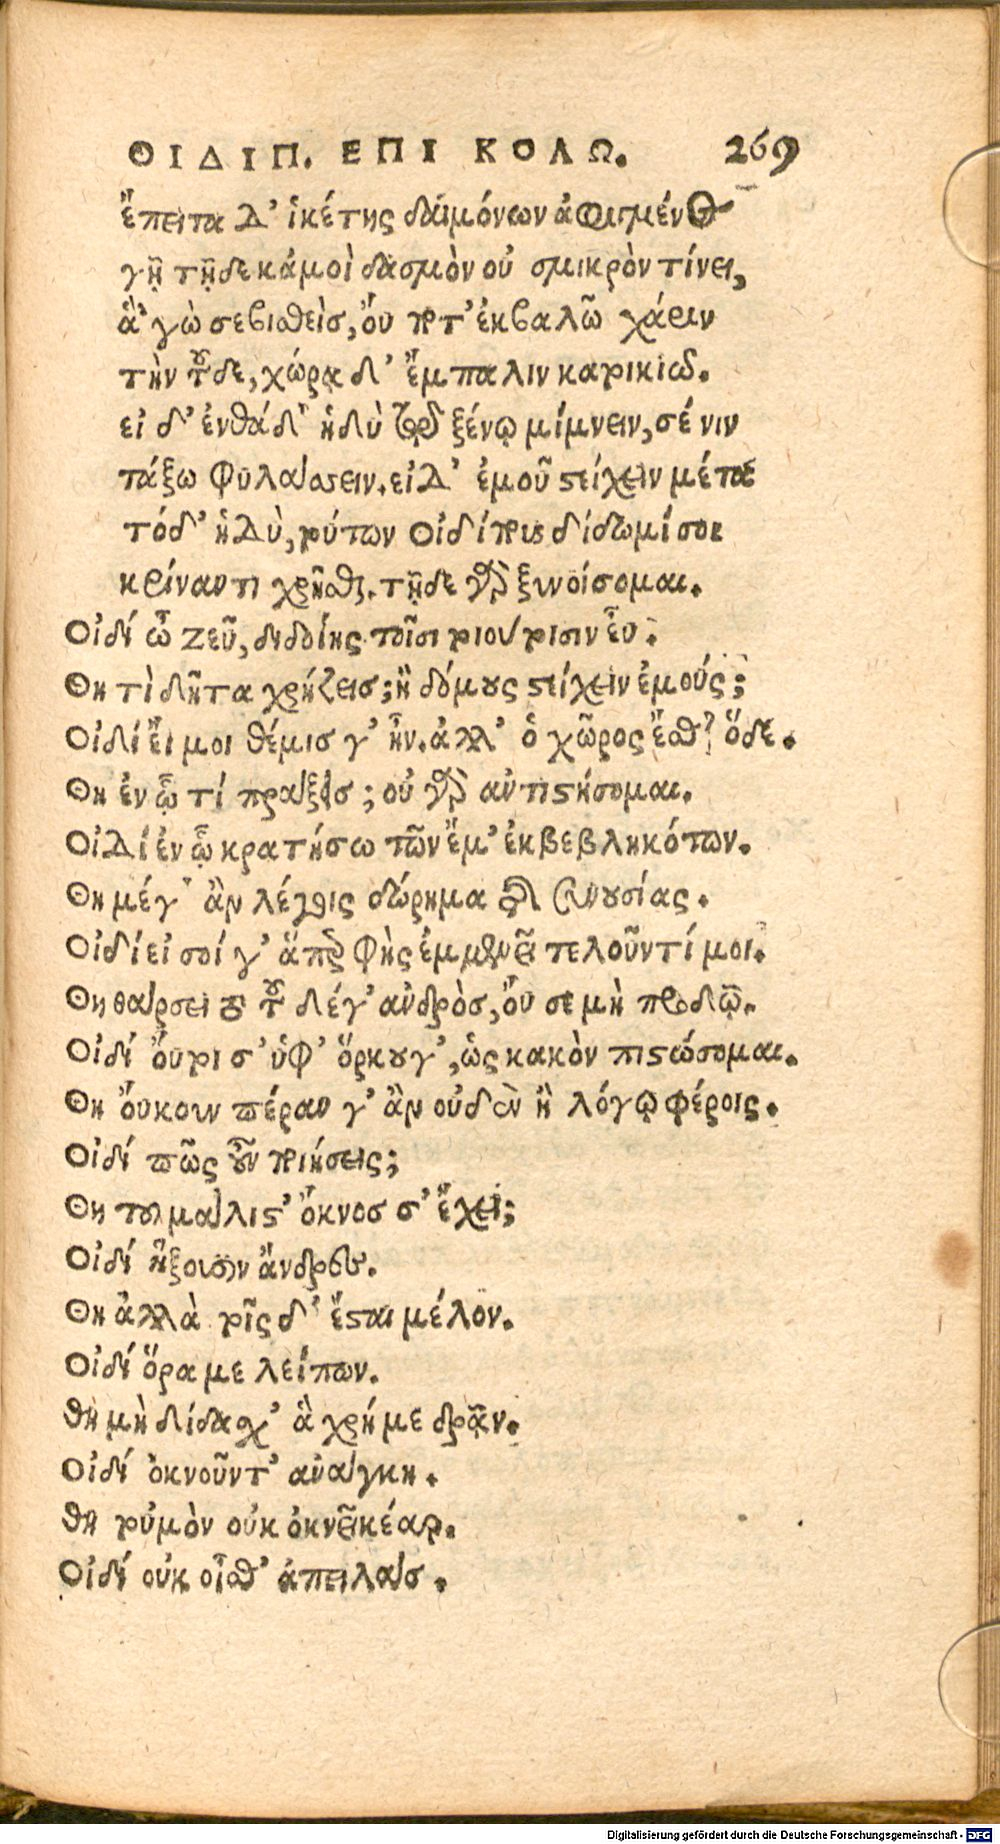 ΟΙΔΙΠ. ΕΠΙ ΚΟΛΩ. 269
ἔπειτα δ' ἱκέτης δαιμόνων ἀφιγμένος
γῇ τῇδε κἀμοὶ δασμὸν οὐ σμικρὸν τίνει,
ἃ 'γὼ σεβισθεὶς, οὔ ποτ' ἐκβαλῶ χάριν
τὴν τοῦδε, χώρᾳ δ' ἔμπαλιν κατοικιῶ.
εἰ δ' ἐνθάδ' ἡδὺ τῷ ξένῳ μίμνειν, σέ νιν
τάξω φυλάσσειν. εἰ δ' ἐμοῦ στείχειν μέτα
τόδ' ἡδὺ, τούτων Οἰδίπους δίδωμί σοι
κρίναντι χρῆσθαι. τῇδε γὰρ ξυνοίσομαι.
Οἰδί ὦ Ζεῦ, διδοίης τοῖσι τοιούτοισιν εὖ.
Θη τί δῆτα χρῄζεις; ἢ δόμους στείχειν ἐμούς;
Οἰδί εἴ μοι θέμις γ' ἦν. ἀλλ' ὁ χῶρος ἔσθ' ὅδε.
Θη ἐν ᾧ τί πράξεις; οὐ γὰρ ἀντιστήσομαι.
Οἰδί ἐν ᾧ κρατήσω τῶν ἔμ' ἐκβεβληκότων.
Θη μέγ' ἂν λέγοις δώρημα τῆς συνουσίας.
Οἰδί εἰ σοί γ' ἅπερ φὴς ἐμμενεῖ τελοῦντί μοι.
Θη θάρσει τὸ τοῦ δέγ' ἀνδρὸς, οὔ σε μὴ προδῶ.
Οἰδί οὔτοι σ' ὑφ' ὅρκου γ', ὡς κακὸν πιστώσομαι.
Θη οὔκουν πέραν γ' ἂν οὐδὲν ἢ λόγῳ φέροις.
Οἰδί πῶς οὖν ποιήσεις;
Θη τοῦ μάλιστ' ὄκνος σ' ἔχει;
Οἰδί ἥξουσιν ἄνδρες.
Θη ἀλλὰ τοῖς δ' ἔσται μέλον.
Οἰδί ὅρα με λείπων.
Θη μὴ δίδασχ' ἃ χρή με δρᾷν.
Οἰδί ὀκνοῦντ' ἀνάγκη.
Θη τοὐμὸν οὐκ ὀκνεῖ κέαρ.
Οἰδί οὐκ οἶσθ' ἀπειλάς.
Digitalisierung gefördert durch die Deutsche Forschungsgemeinschaft - DFG